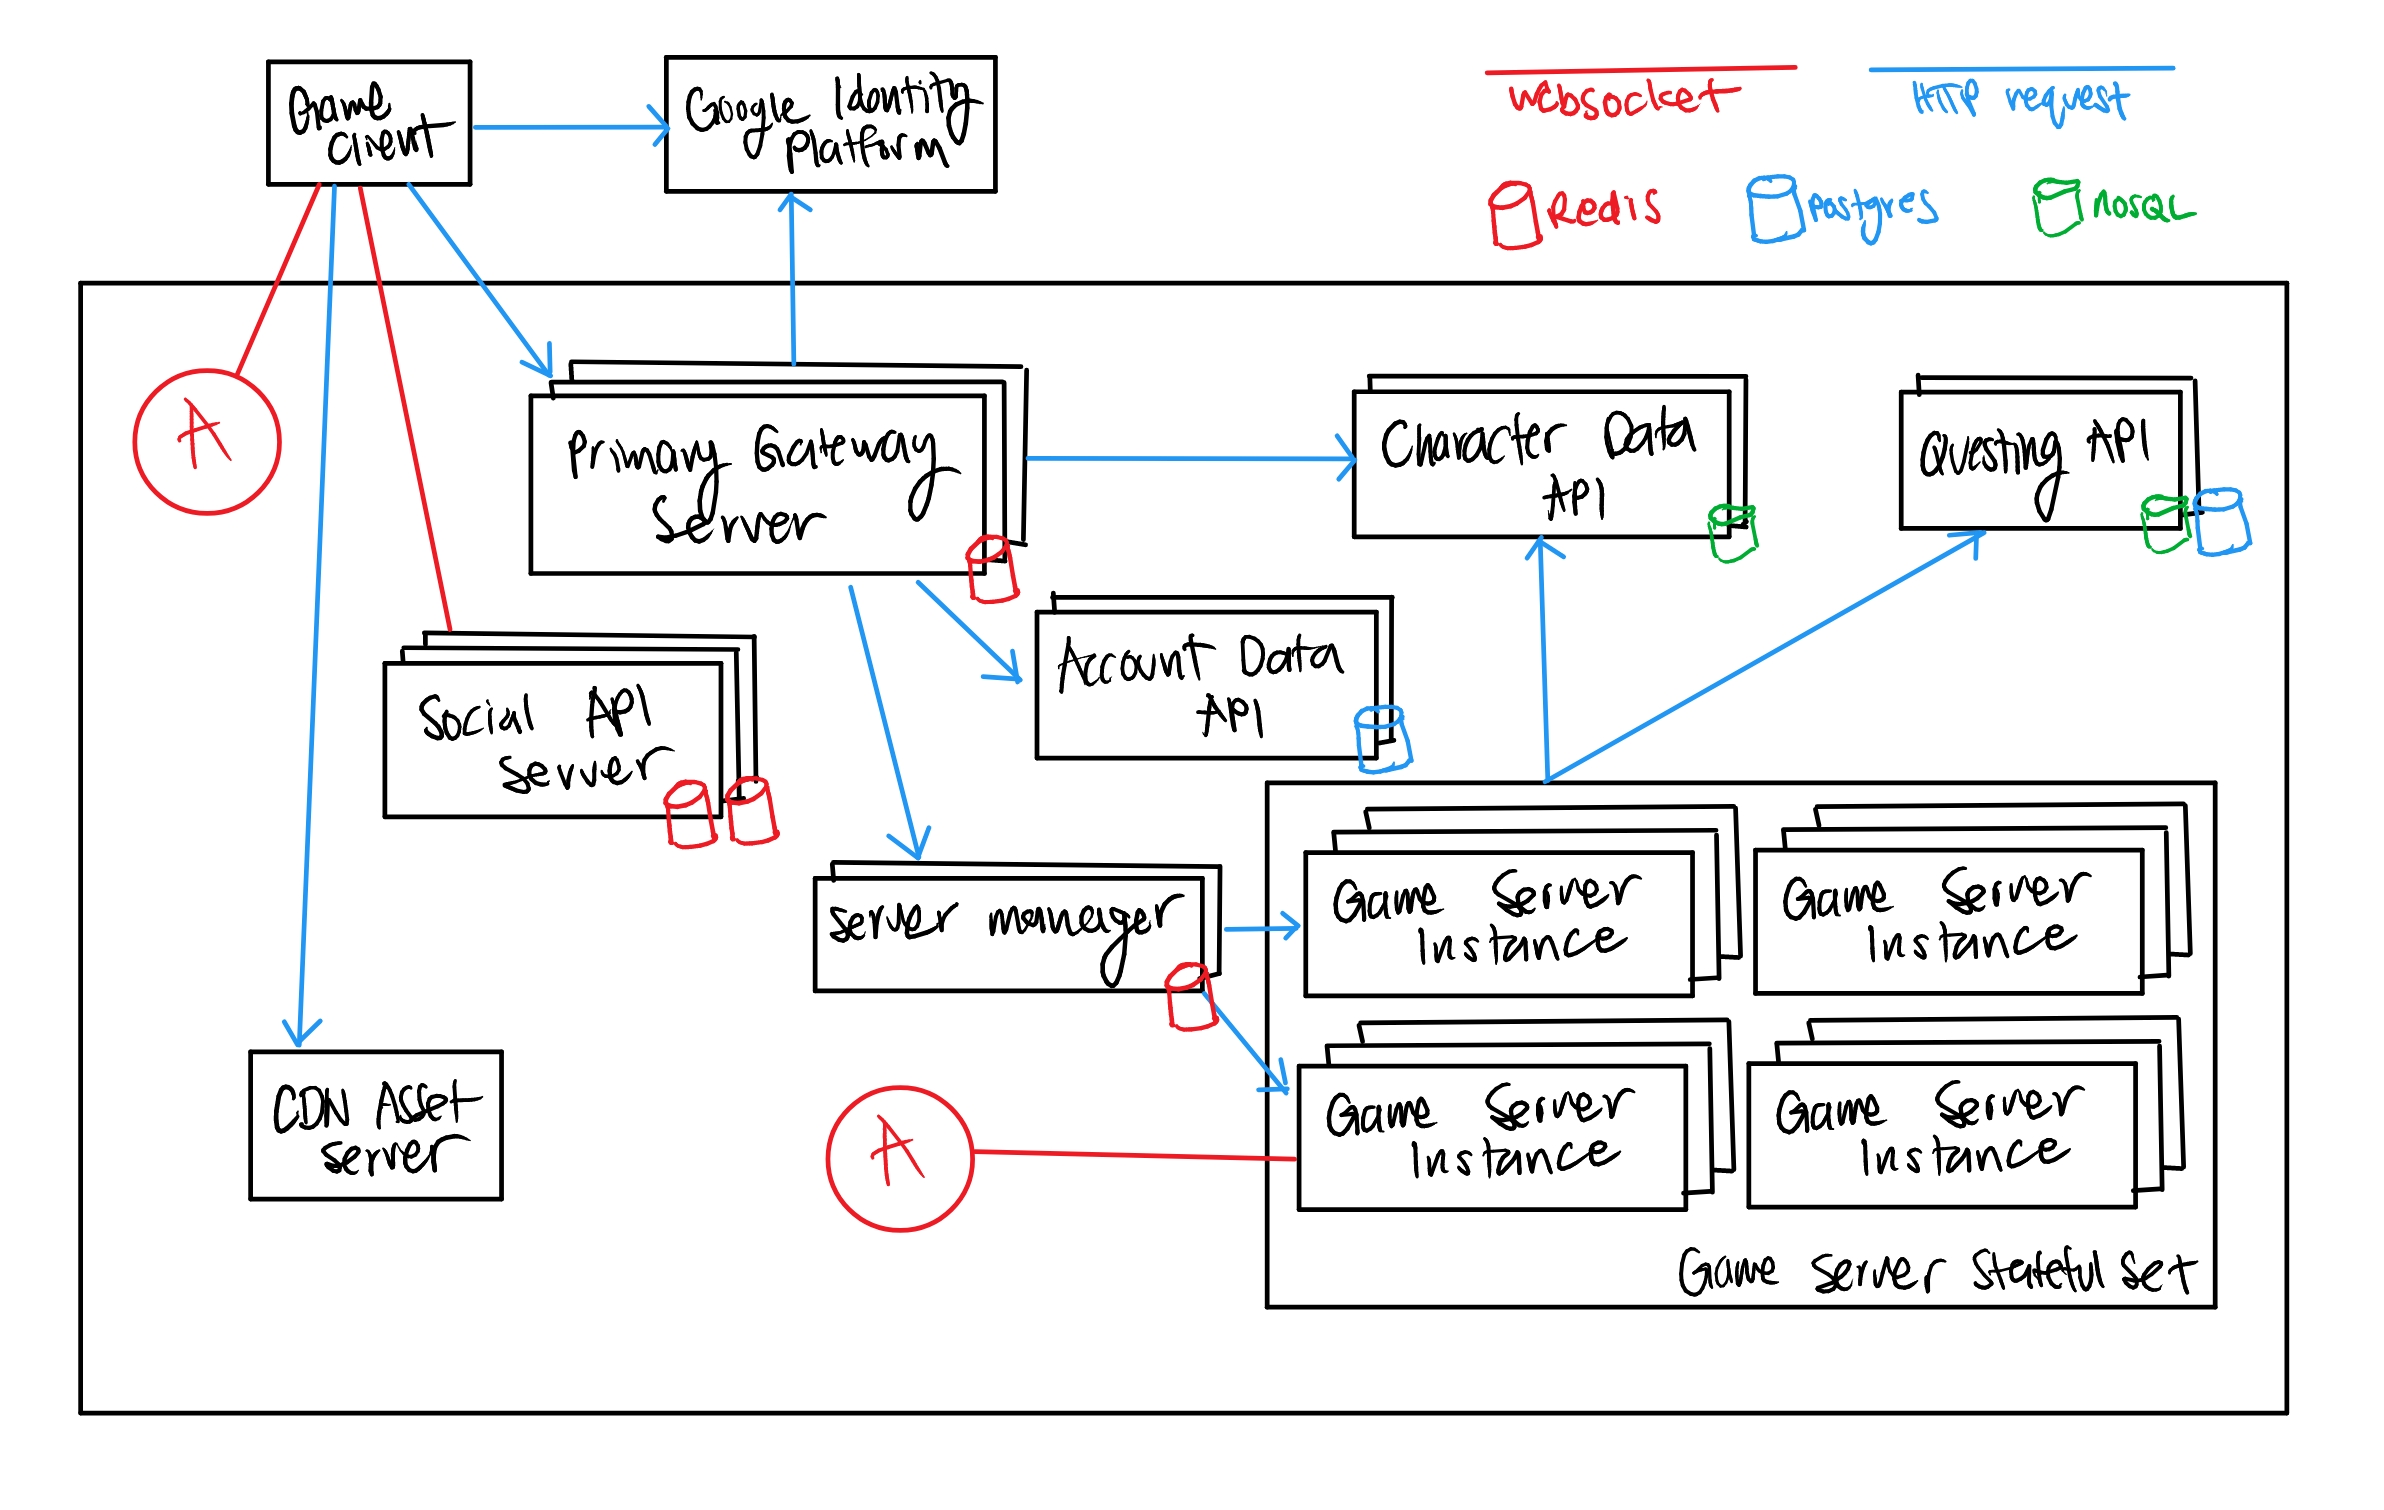 Game
client
Google Identity
Platform
Websocket
HTTP request
Redis
Postgres
NoSQL
A
Primary Gateway
Server
Character Data
API
Questing API
Account Data
API
Social API
Server
Server manager
Game Server
Instance
Game Server
Instance
CDN Asset
server
A
Game Server
Instance
Game Server
Instance
Game Server Stateful Set